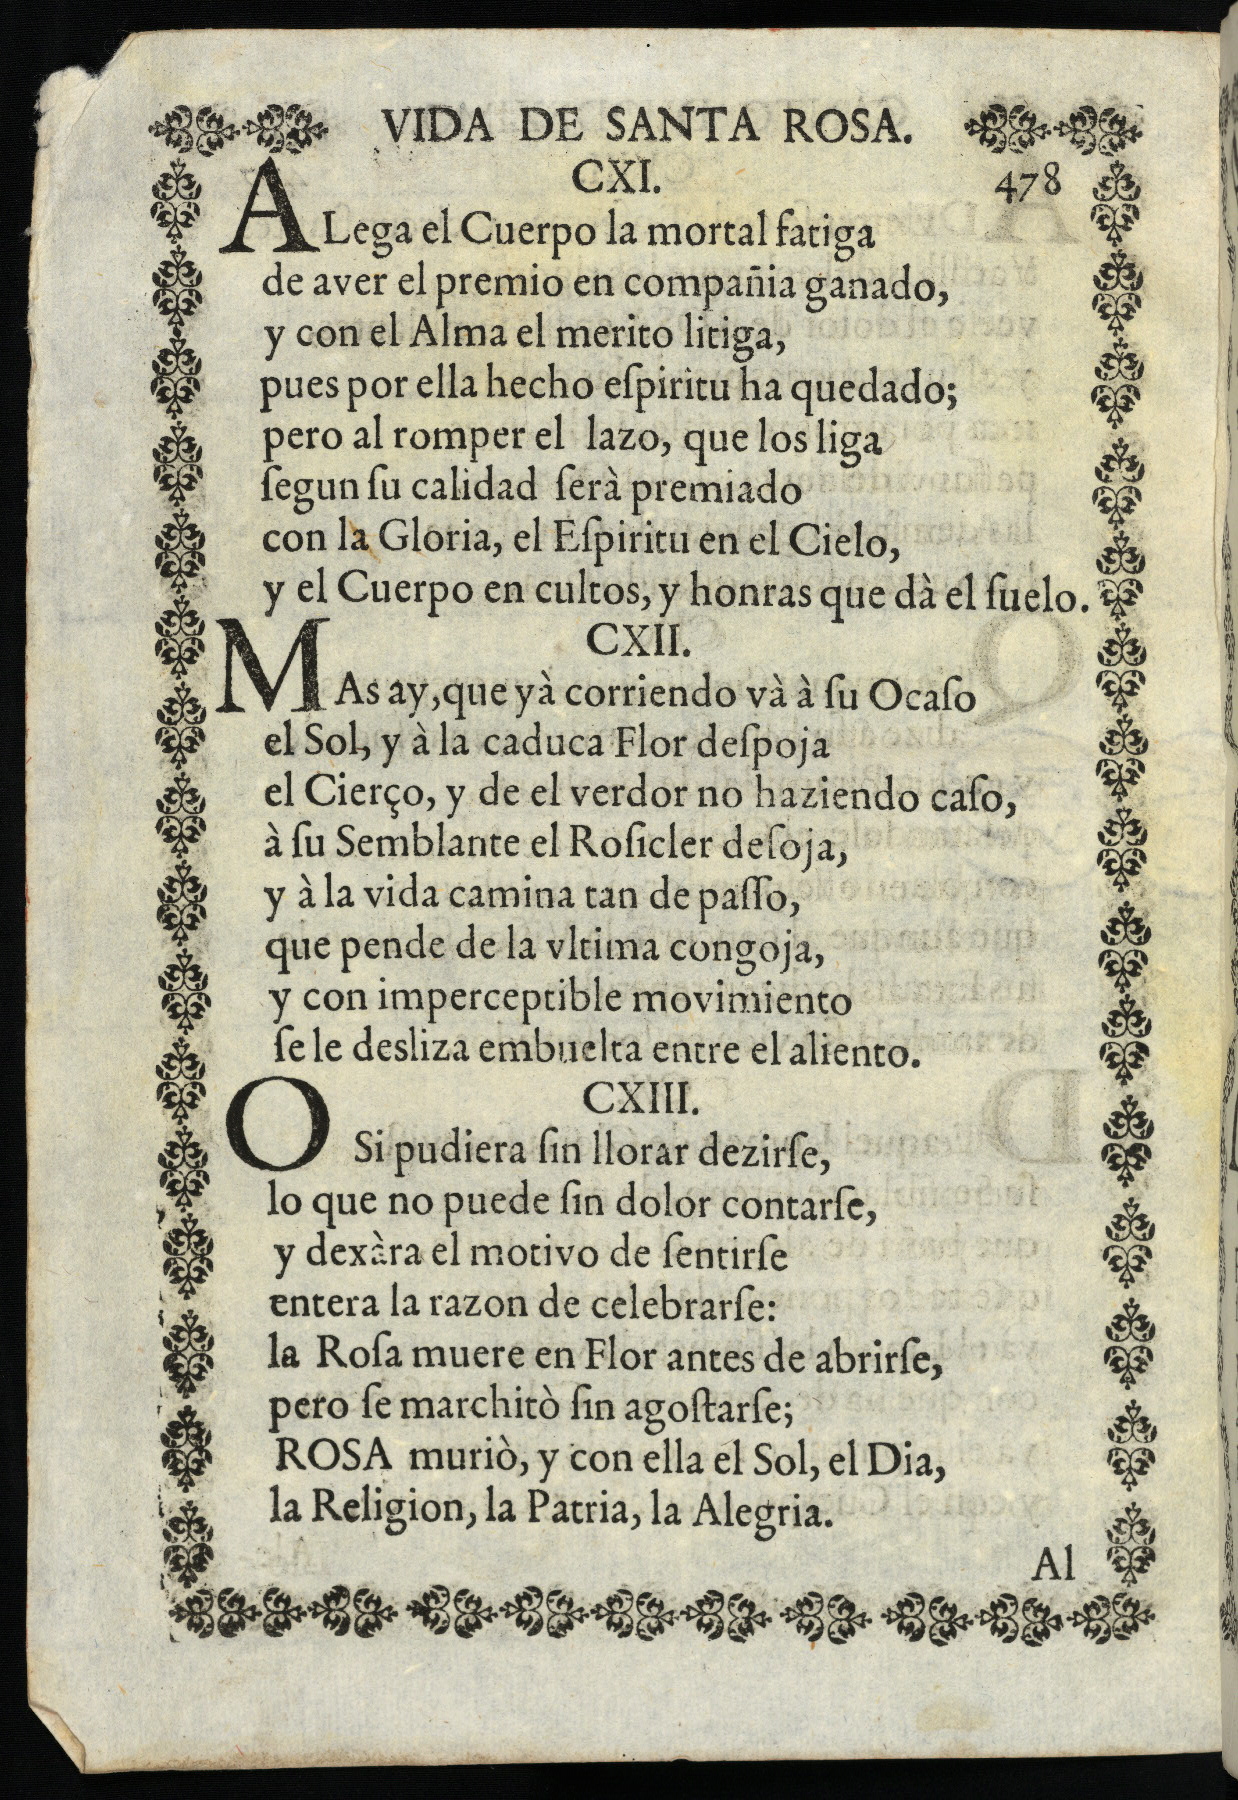 VIDA DE SANTA ROSA.
CXI. 478
ALega el Cuerpo la mortal fatiga
de aver el premio en compañia ganado,
y con el Alma el merito litiga,
pues por ella hecho eſpiritu ha quedado;
pero al romper el lazo, que los liga
ſegun ſu calidad ſerà premiado
con la Gloria, el Eſpiritu en el Cielo,
y el Cuerpo en cultos, y honras que dà el ſuelo.
CXII.
MAs ay, que yà corriendo và à ſu Ocaſo
el Sol, y à la caduca Flor deſpoja
el Cierço, y de el verdor no haziendo caſo,
à ſu Semblante el Roſicler deſoja,
y à la vida camina tan de paſſo,
que pende de la vltima congoja,
y con imperceptible movimiento
ſe le desliza embuelta entre el aliento.
CXIII.
O Si pudiera ſin llorar dezirſe,
lo que no puede ſin dolor contarſe,
y dexàra el motivo de ſentirſe
entera la razon de celebrarſe:
la Roſa muere en Flor antes de abrirſe,
pero ſe marchitò ſin agoſtarſe;
ROSA muriò, y con ella el Sol, el Dia,
la Religion, la Patria, la Alegria.
Al